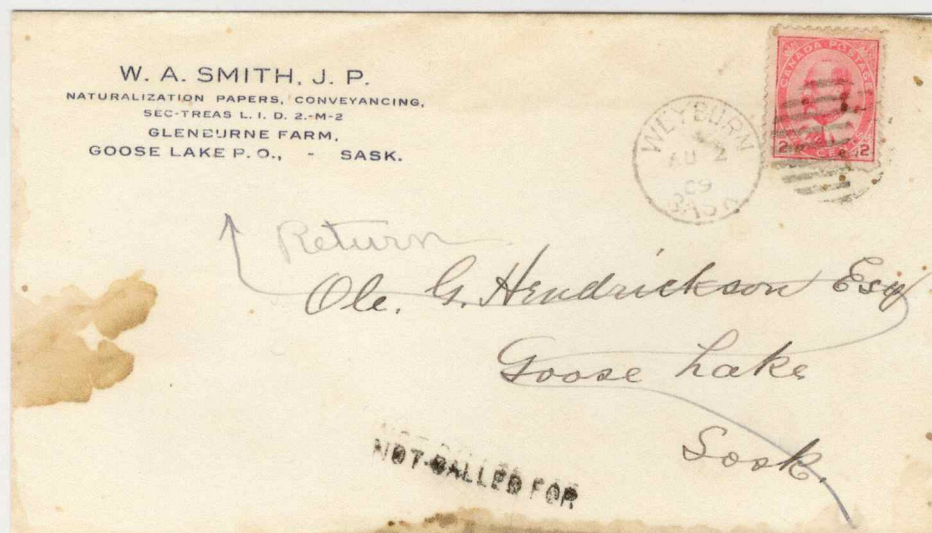 W. A. SMITH, J. P.
NATURALIZATION PAPERS, CONVEYANCING,
SEC-TREAS L. I. D. 2.-M-2
GLENBURNE FARM,
GOOSE LAKE P. O., - SASK.
CANADA POSTAGE
2 CENTS 2
WEYBURN
AU 2
09
SASK
Return
Ole. G. Hendrickson Esq
Goose Lake
Sask.
NOT CALLED FOR